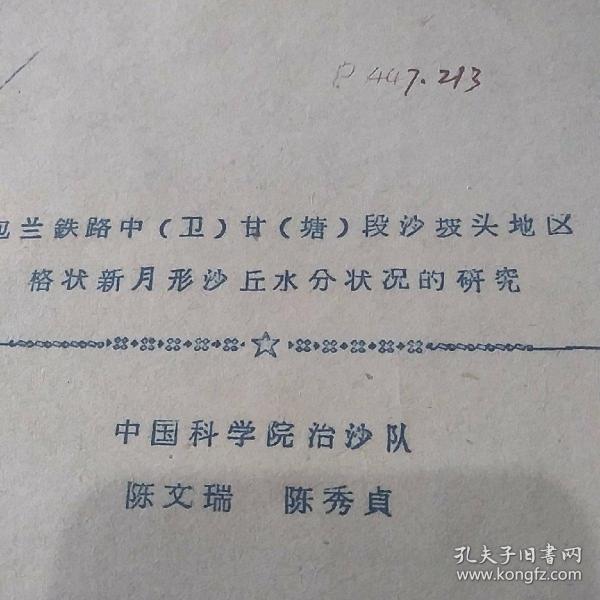 P 447.213
包兰鉄路中(卫)甘(塘)段沙坡头地区
格状新月形沙丘水分状况的研究
中国科学院治沙队
陈文瑞 陈秀貞
孔夫子旧书网
www.kongfz.com